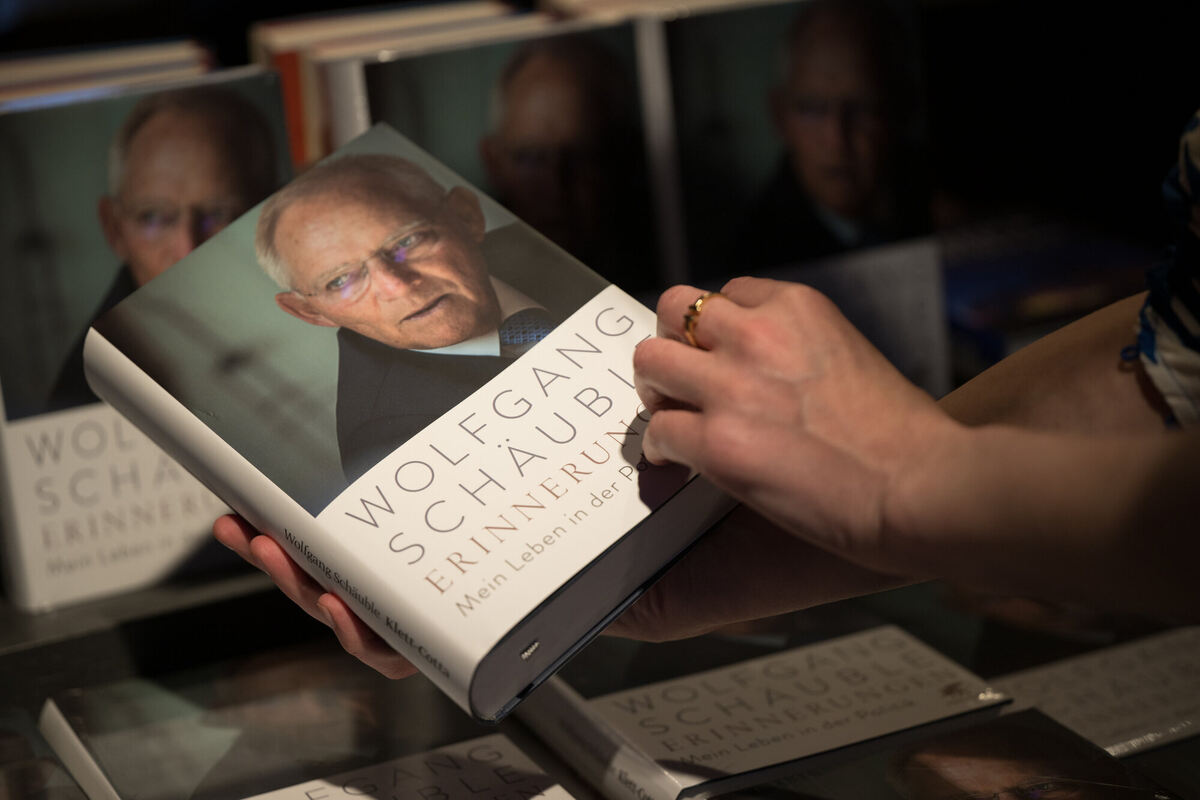 WOLFGANG
SCHÄUBLE
ERINNERUNG
Mein Leben in der Po
Wolfgang Schäuble Klett-Cotta
WOL
SCHÄ
ERINNERU
Mein Leben in
WOLFGANG
SCHÄUBLE
ERINNERUNGEN
Mein Leben in der Politik
Klett-Cotta
FGANG
UBLE
EN